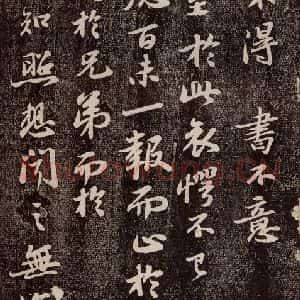 得 書不意
至於此哀愕不已
百未一報而止於
於兄弟而於
知照想聞之無